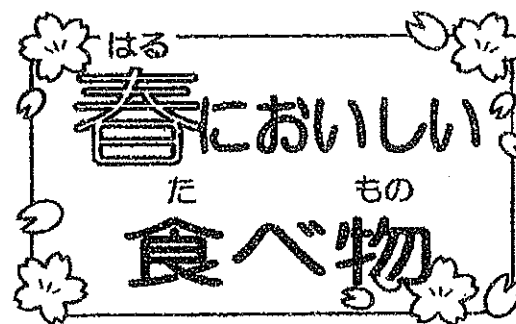 はる
春においしい
た もの
食べ物